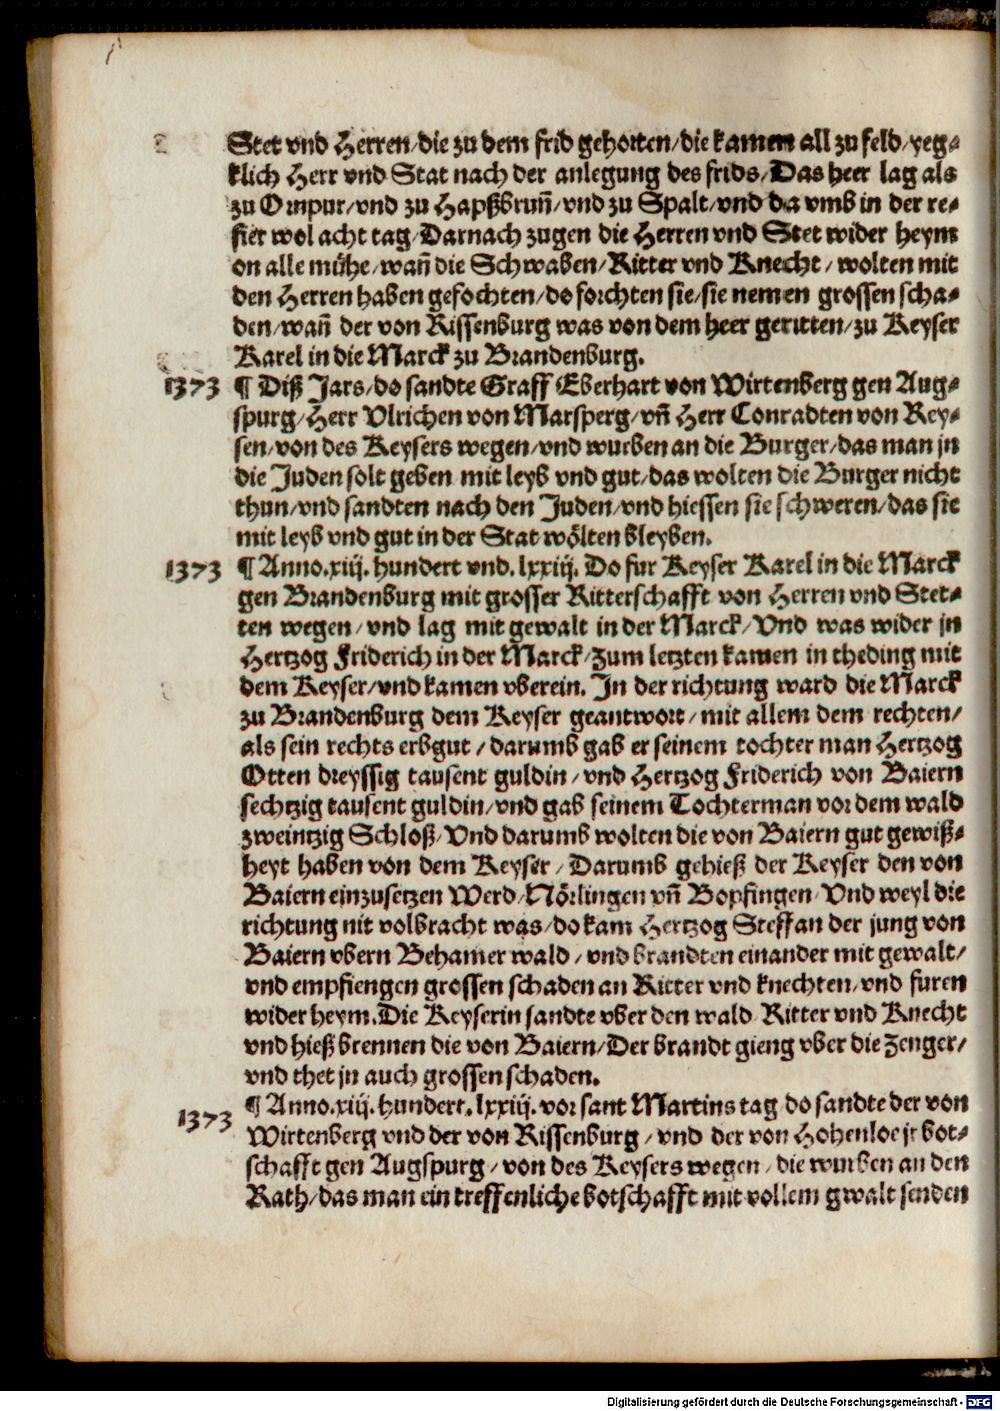 Stet vnd Herren/die zu dem frid gehorten/die kamen all zu feld/yeg-
klich Herr vnd Stat nach der anlegung des frids/Das heer lag als
zu Ompur/vnd zu Hapßbruñ/vnd zu Spalt/vnd da vmb in der re-
fier wol acht tag/Darnach zugen die Herren vnd Stet wider heym
on alle mühe/wañ die Schwaben/Ritter vnd Knecht/wolten mit
den Herren haben gefochten/do forchten sie/sie nemen grossen scha-
den/wañ der von Rissenburg was von dem heer geritten/zu Keyser
Karel in die Marck zu Brandenburg.
1373 ¶ Diß Jars/do sandte Graff Eberhart von Wirtenberg gen Aug-
spurg/Herr Vlrichen von Marsperg/vñ Herr Conradten von Rey-
sen/von des Keysers wegen/vnd wurben an die Burger/das man jn
die Juden solt geben mit leyb vnd gut/das wolten die Burger nicht
thun/vnd sandten nach den Juden/vnd hiessen sie schweren/das sie
mit leyb vnd gut in der Stat wölten bleyben.
1373 ¶ Anno.xiij.hundert vnd.lxxiij. Do fur Keyser Karel in die Marck
gen Brandenburg mit grosser Ritterschafft von Herren vnd Stet-
ten wegen/vnd lag mit gewalt in der Marck/Vnd was wider jn
Hertzog Friderich in der Marck/zum letzten kamen in theding mit
dem Keyser/vnd kamen vberein. In der richtung ward die Marck
zu Brandenburg dem Keyser geantwort/mit allem dem rechten/
als sein rechts erbgut/darumb gab er seinem tochter man Hertzog
Otten dreyssig tausent guldin/vnd Hertzog Friderich von Baiern
sechtzig tausent guldin/vnd gab seinem Tochterman vor dem wald
zweintzig Schloß/Vnd darumb wolten die von Baiern gut gewiß-
heyt haben von dem Keyser/Darumb gehieß der Keyser den von
Baiern einzusetzen Werd/Nörlingen vñ Bopfingen/Vnd weyl die
richtung nit volbracht was/do kam Hertzog Steffan der jung von
Baiern vbern Behamer wald/vnd brandten einander mit gewalt/
vnd empfiengen grossen schaden an Ritter vnd knechten/vnd furen
wider heym.Die Keyserin sandte vber den wald Ritter vnd Knecht
vnd hieß brennen die von Baiern/Der brandt gieng vber die Zenger/
vnd thet jn auch grossen schaden.
1373 ¶ Anno.xiij.hundert.lxxiij.vor sant Martins tag do sandte der von
Wirtenberg vnd der von Rissenburg/vnd der von Hohenloe jr bot-
schafft gen Augspurg/von des Keysers wegen/die wurben an den
Rath/das man ein treffenliche botschafft mit vollem gwalt senden
Digitalisierung gefördert durch die Deutsche Forschungsgemeinschaft - DFG